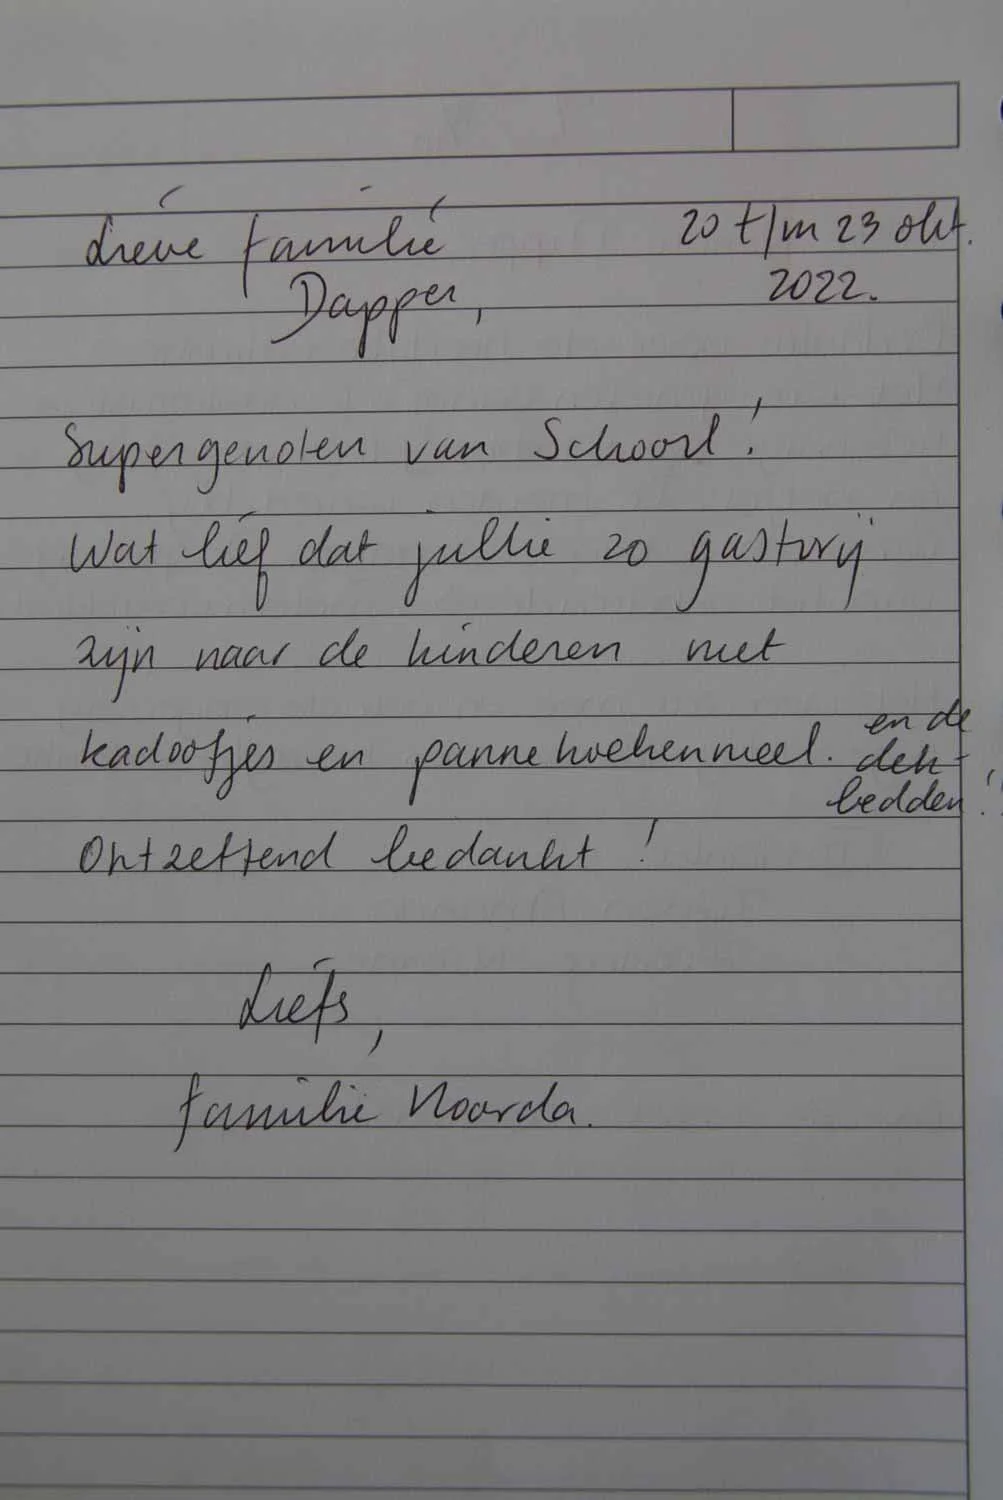 Lieve familie
20 t/m 23 okt.
Dapper,
2022.
Supergenoten van Schoorl!
Wat lief dat jullie zo gastvrij
zijn naar de kinderen met
kadootjes en pannekoekenmeel. en de
dek-
bedden!
Ontzettend bedankt!
Liefs,
familie Noorda.